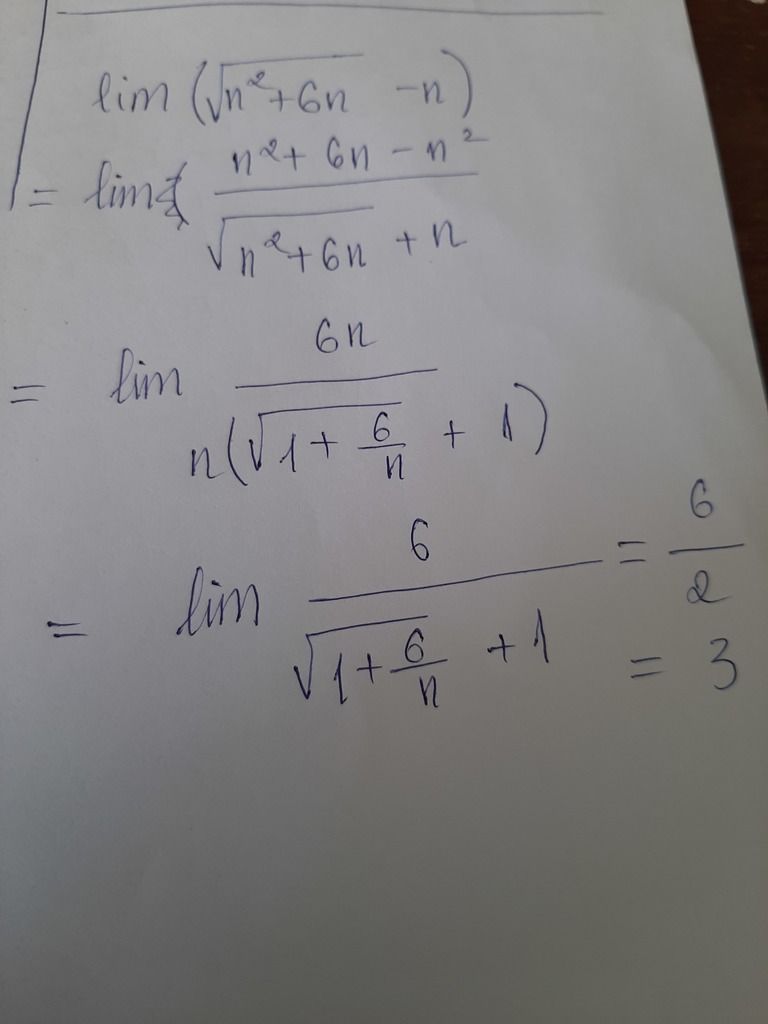 lim (√(n²+6n) -n)
= lim (n²+ 6n - n²)/(√(n²+6n) + n)
= lim 6n/(n(√(1+ 6/n) + 1))
= lim 6/(√(1+6/n) +1) = 6/2
= 3